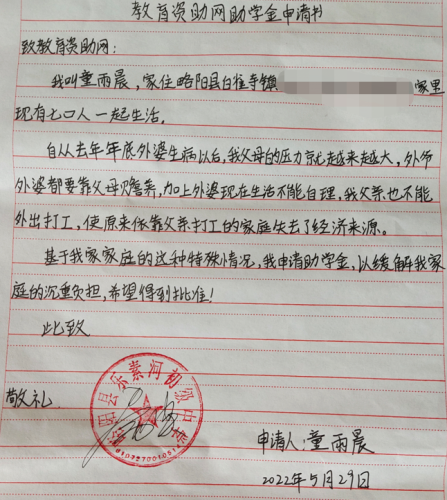 教育资助网助学金申请书
致教育资助网:
我叫童雨晨,家住略阳县白雀寺镇 家里
现有七口人一起生活。
自从去年年底外婆生病以后,我父母的压力就越来越大,外爷
外婆都要靠父母赡养,加上外婆现在生活不能自理,我父亲也不能
外出打工,使原来依靠父亲打工的家庭失去了经济来源。
基于我家家庭的这种特殊情况,我申请助学金,以缓解我家
庭的沉重负担,希望得到批准!
此致
敬礼
略阳县乐素河初级中学
申请人:童雨晨
2022年5月29日